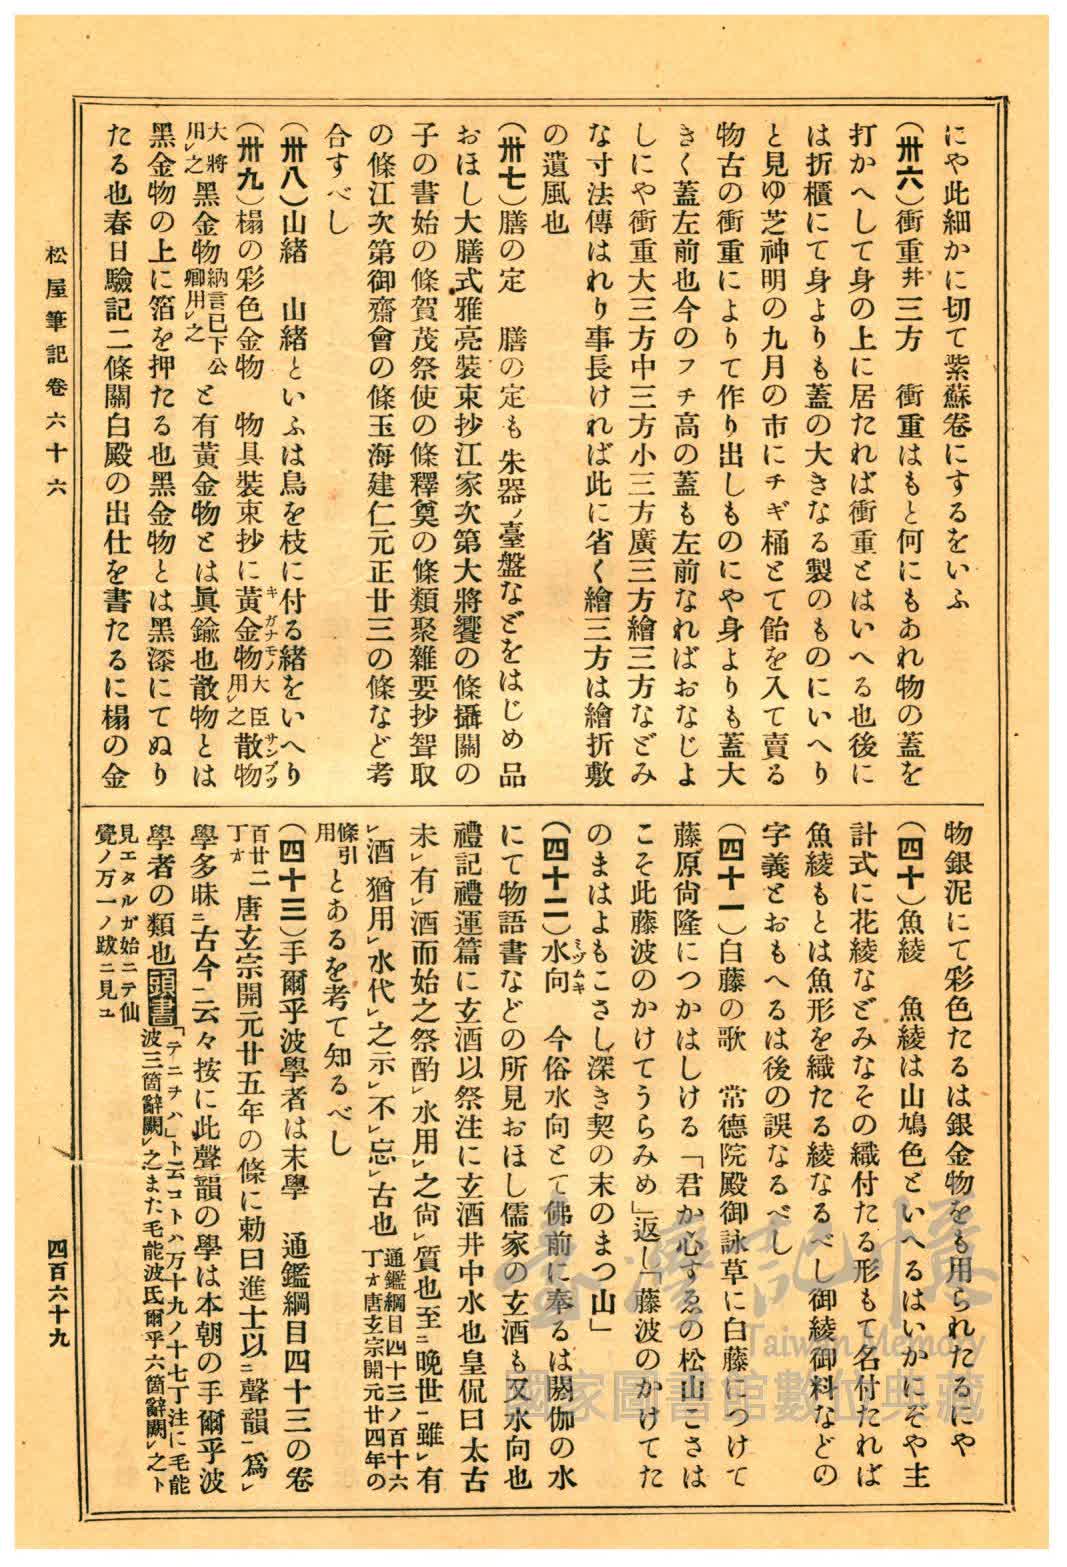 にや此細かに切て紫蘇卷にするをいふ
(卅六)衝重幷三方　衝重はもと何にもあれ物の蓋を
打かへして身の上に居たれば衝重とはいへる也後に
は折櫃にて身よりも蓋の大きなる製のものにいへり
と見ゆ芝神明の九月の市にチギ桶とて飴を入て賣る
物古の衝重によりて作り出しものにや身よりも蓋大
きく蓋左前也今のフチ高の蓋も左前なればおなじよ
しにや衝重大三方中三方小三方廣三方繪三方などみ
な寸法傳はれり事長ければ此に省く繪三方は繪折敷
の遺風也
(卅七)膳の定　膳の定も朱器ノ臺盤などをはじめ品
おほし大膳式雅亮裝束抄江家次第大將饗の條攝關の
子の書始の條賀茂祭使の條釋奠の條類聚雜要抄聟取
の條江次第御齋會の條玉海建仁元正廿三の條など考
合すべし
(卅八)山緒　山緒といふは鳥を枝に付る緒をいへり
(卅九)榻の彩色金物　物具裝束抄に黃金物キガナモノ大臣用㆑之散物サンブツ
大將用㆑之黑金物納言已下公卿用㆑之と有黃金物とは眞鍮也散物とは
黑金物の上に箔を押たる也黑金物とは黑漆にてぬり
たる也春日驗記二條關白殿の出仕を書たるに榻の金
物銀泥にて彩色たるは銀金物をも用られたるにや
(四十)魚綾　魚綾は山鳩色といへるはいかにぞや主
計式に花綾などみなその織付たる形もて名付たれば
魚綾もとは魚形を織たる綾なるべし御綾御料などの
字義とおもへるは後の誤なるべし
(四十一)白藤の歌　常德院殿御詠草に白藤につけて
藤原尙隆につかはしける「君か心すゑの松山こさは
こそ此藤波のかけてうらみめ」返し「藤波のかけてた
のまはよもこさし深き契の末のまつ山」
(四十二)水向ミヅムキ　今俗水向とて佛前に奉るは閼伽の水
にて物語書などの所見おほし儒家の玄酒も又水向也
禮記禮運篇に玄酒以祭注に玄酒井中水也皇侃曰太古
未㆑有㆑酒而始之祭酌㆑水用㆑之尙㆑質也至㆓晚世㆒雖㆑有
㆑酒猶用㆑水代㆑之示㆑不㆑忘㆑古也通鑑綱目四十三ノ百十六丁オ唐玄宗開元廿四年の
條引用とあるを考て知るべし
(四十三)手爾乎波學者は末學　通鑑綱目四十三の卷
百廿二丁オ　唐玄宗開元廿五年の條に勅曰進士以㆓聲韻㆒爲㆑
學多昧㆓古今㆒云々按に此聲韻の學は本朝の手爾乎波
學者の類也頭書「テニヲハ」ト云コトハ万十九ノ十七丁注に毛能波三箇辭闕㆑之また毛能波氏爾乎六箇辭闕㆑之ト
見エタルガ始ニテ仙覺ノ万一ノ跋ニ見ユ
松屋筆記卷六十六
四百六十九
臺灣記憶
Taiwan Memory
國家圖書館數位典藏